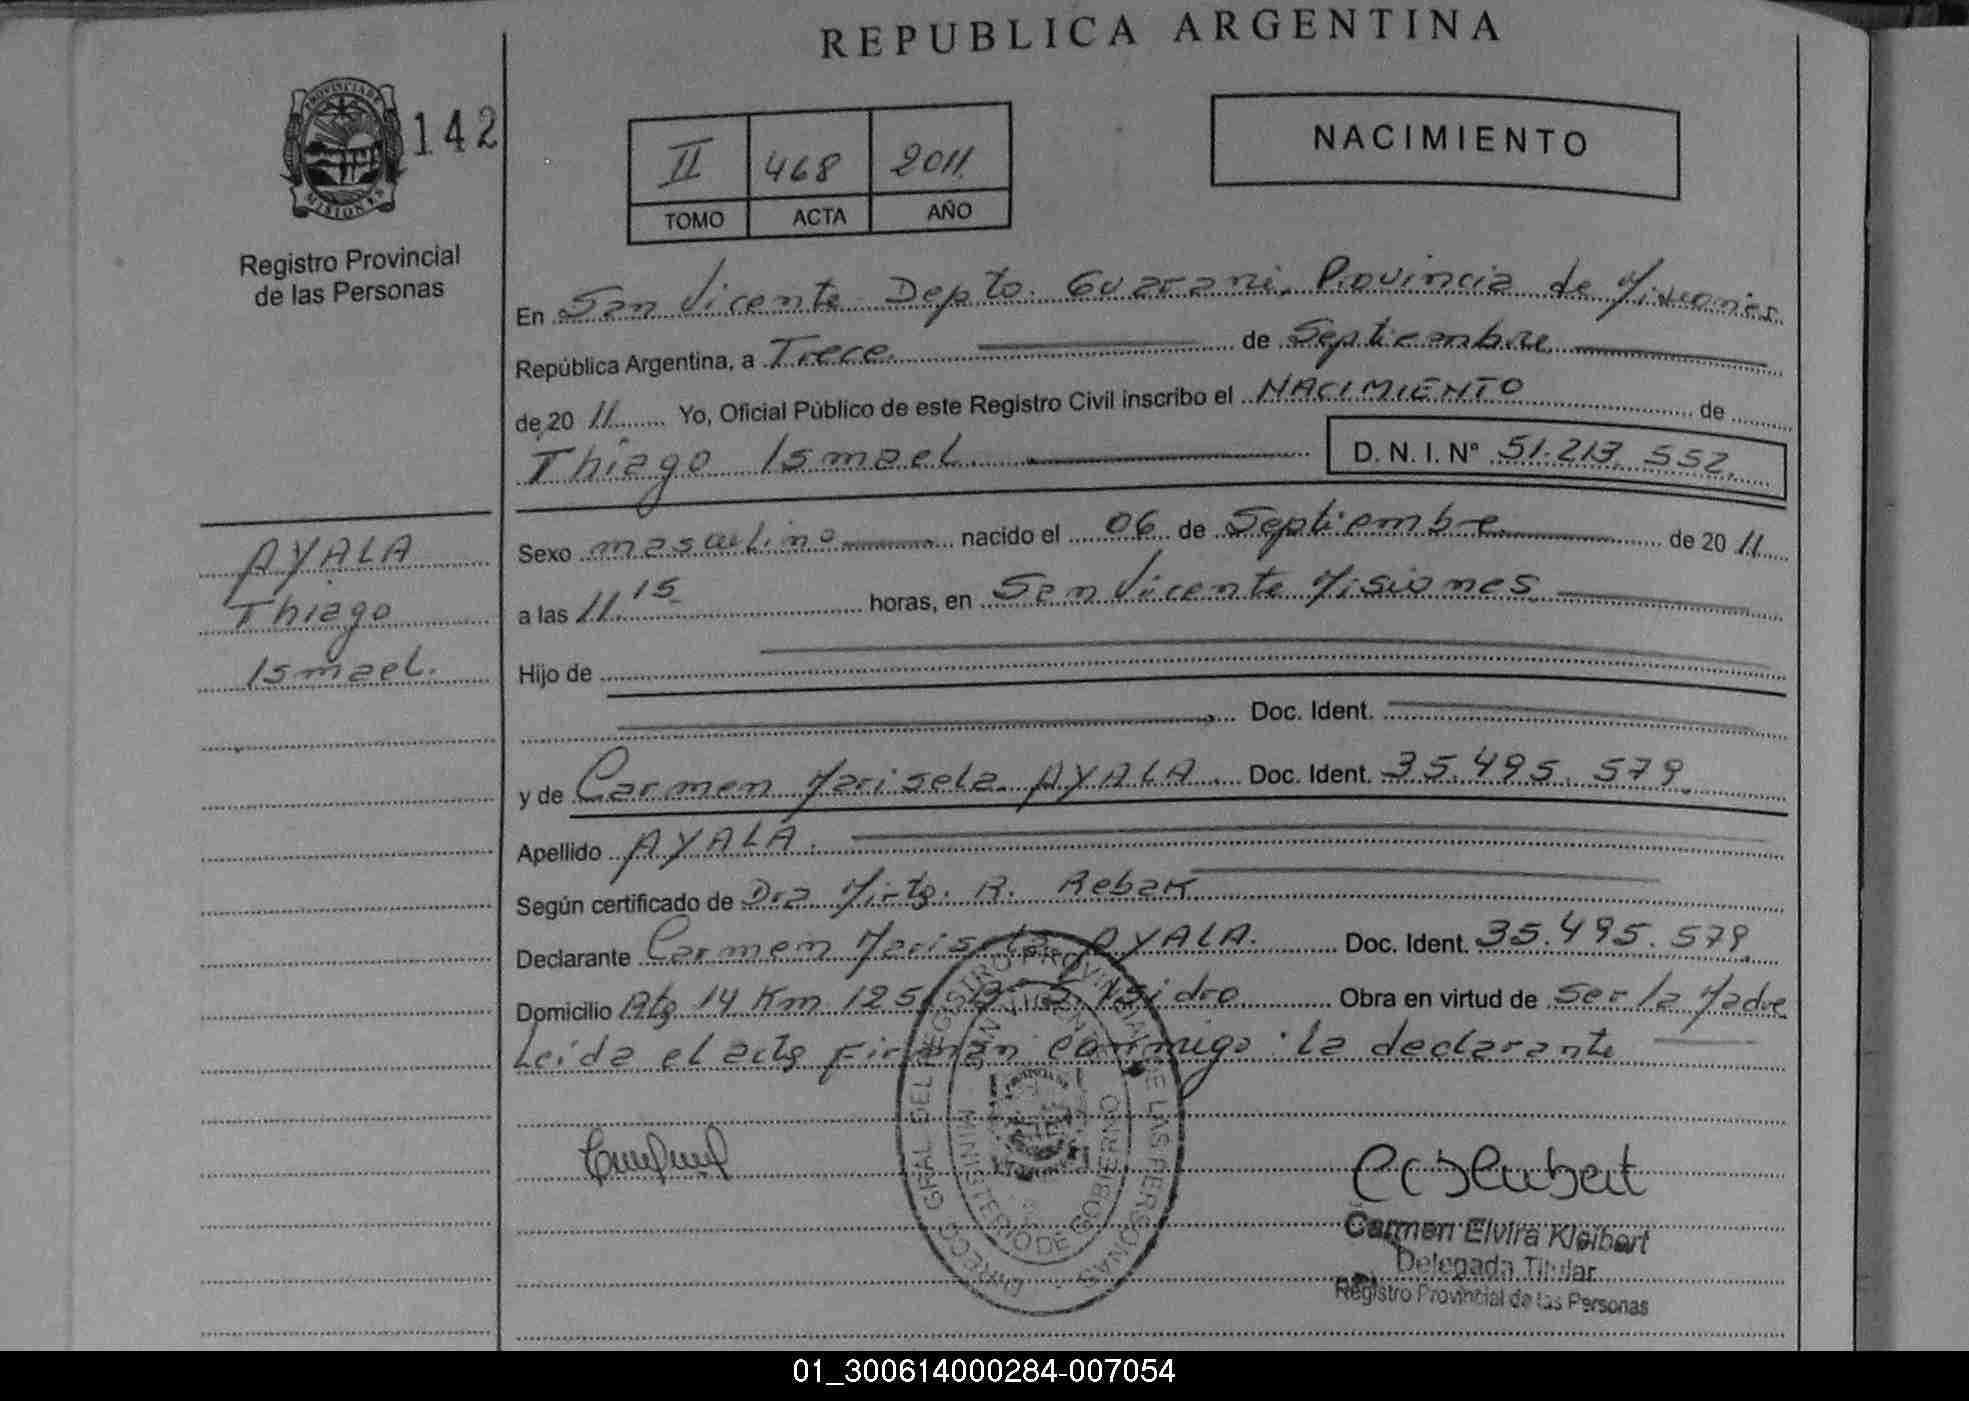 REPUBLICA ARGENTINA
PROVINCIA DE
MISIONES
142
Registro Provincial
de las Personas
II 468 2011
TOMO ACTA AÑO
NACIMIENTO
En San Vicente Depto. Guarani, Provincia de Misiones
República Argentina, a Trece de Septiembre
de 20 11 Yo, Oficial Público de este Registro Civil inscribo el NACIMIENTO de
Thiago Ismael D. N. I. N° 51.213.552.
AYALA
Thiago
Ismael.
Sexo masculino nacido el 06 de Septiembre de 20 11
a las 11.15 horas, en San Vicente Misiones
Hijo de
Doc. Ident.
y de Carmen Marisela AYALA Doc. Ident. 35.495.579
Apellido AYALA.
Según certificado de Dra Mirta. R. Rebak
Declarante Carmen Marisela AYALA. Doc. Ident. 35.495.579
Domicilio Rta 14 Km 125, B° S. Isidro Obra en virtud de Ser la Madre
Leída el acta firman conmigo: la declarante
DIRECC. GRAL DEL REGISTRO PROVINCIAL DE LAS PERSONAS
SAN VICENTE
MINISTERIO DE GOBIERNO
PROVINCIA DE
Carmen Elvira Kleibert
Delegada Titular
Registro Provincial de las Personas
01_300614000284-007054